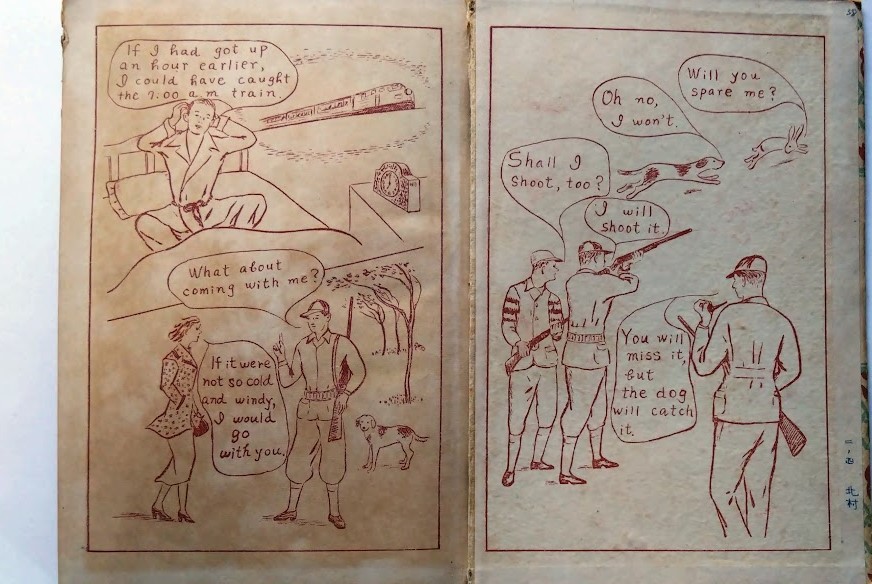 If I had got up
an hour earlier,
I could have caught
the 7:00 a.m train.
What about
coming with me?
If it were
not so cold
and windy,
I would
go
with you.
Will you
spare me?
Oh no,
I won't.
Shall I
shoot, too?
I will
shoot it.
You will
miss it,
but
the dog
will catch
it.
北村